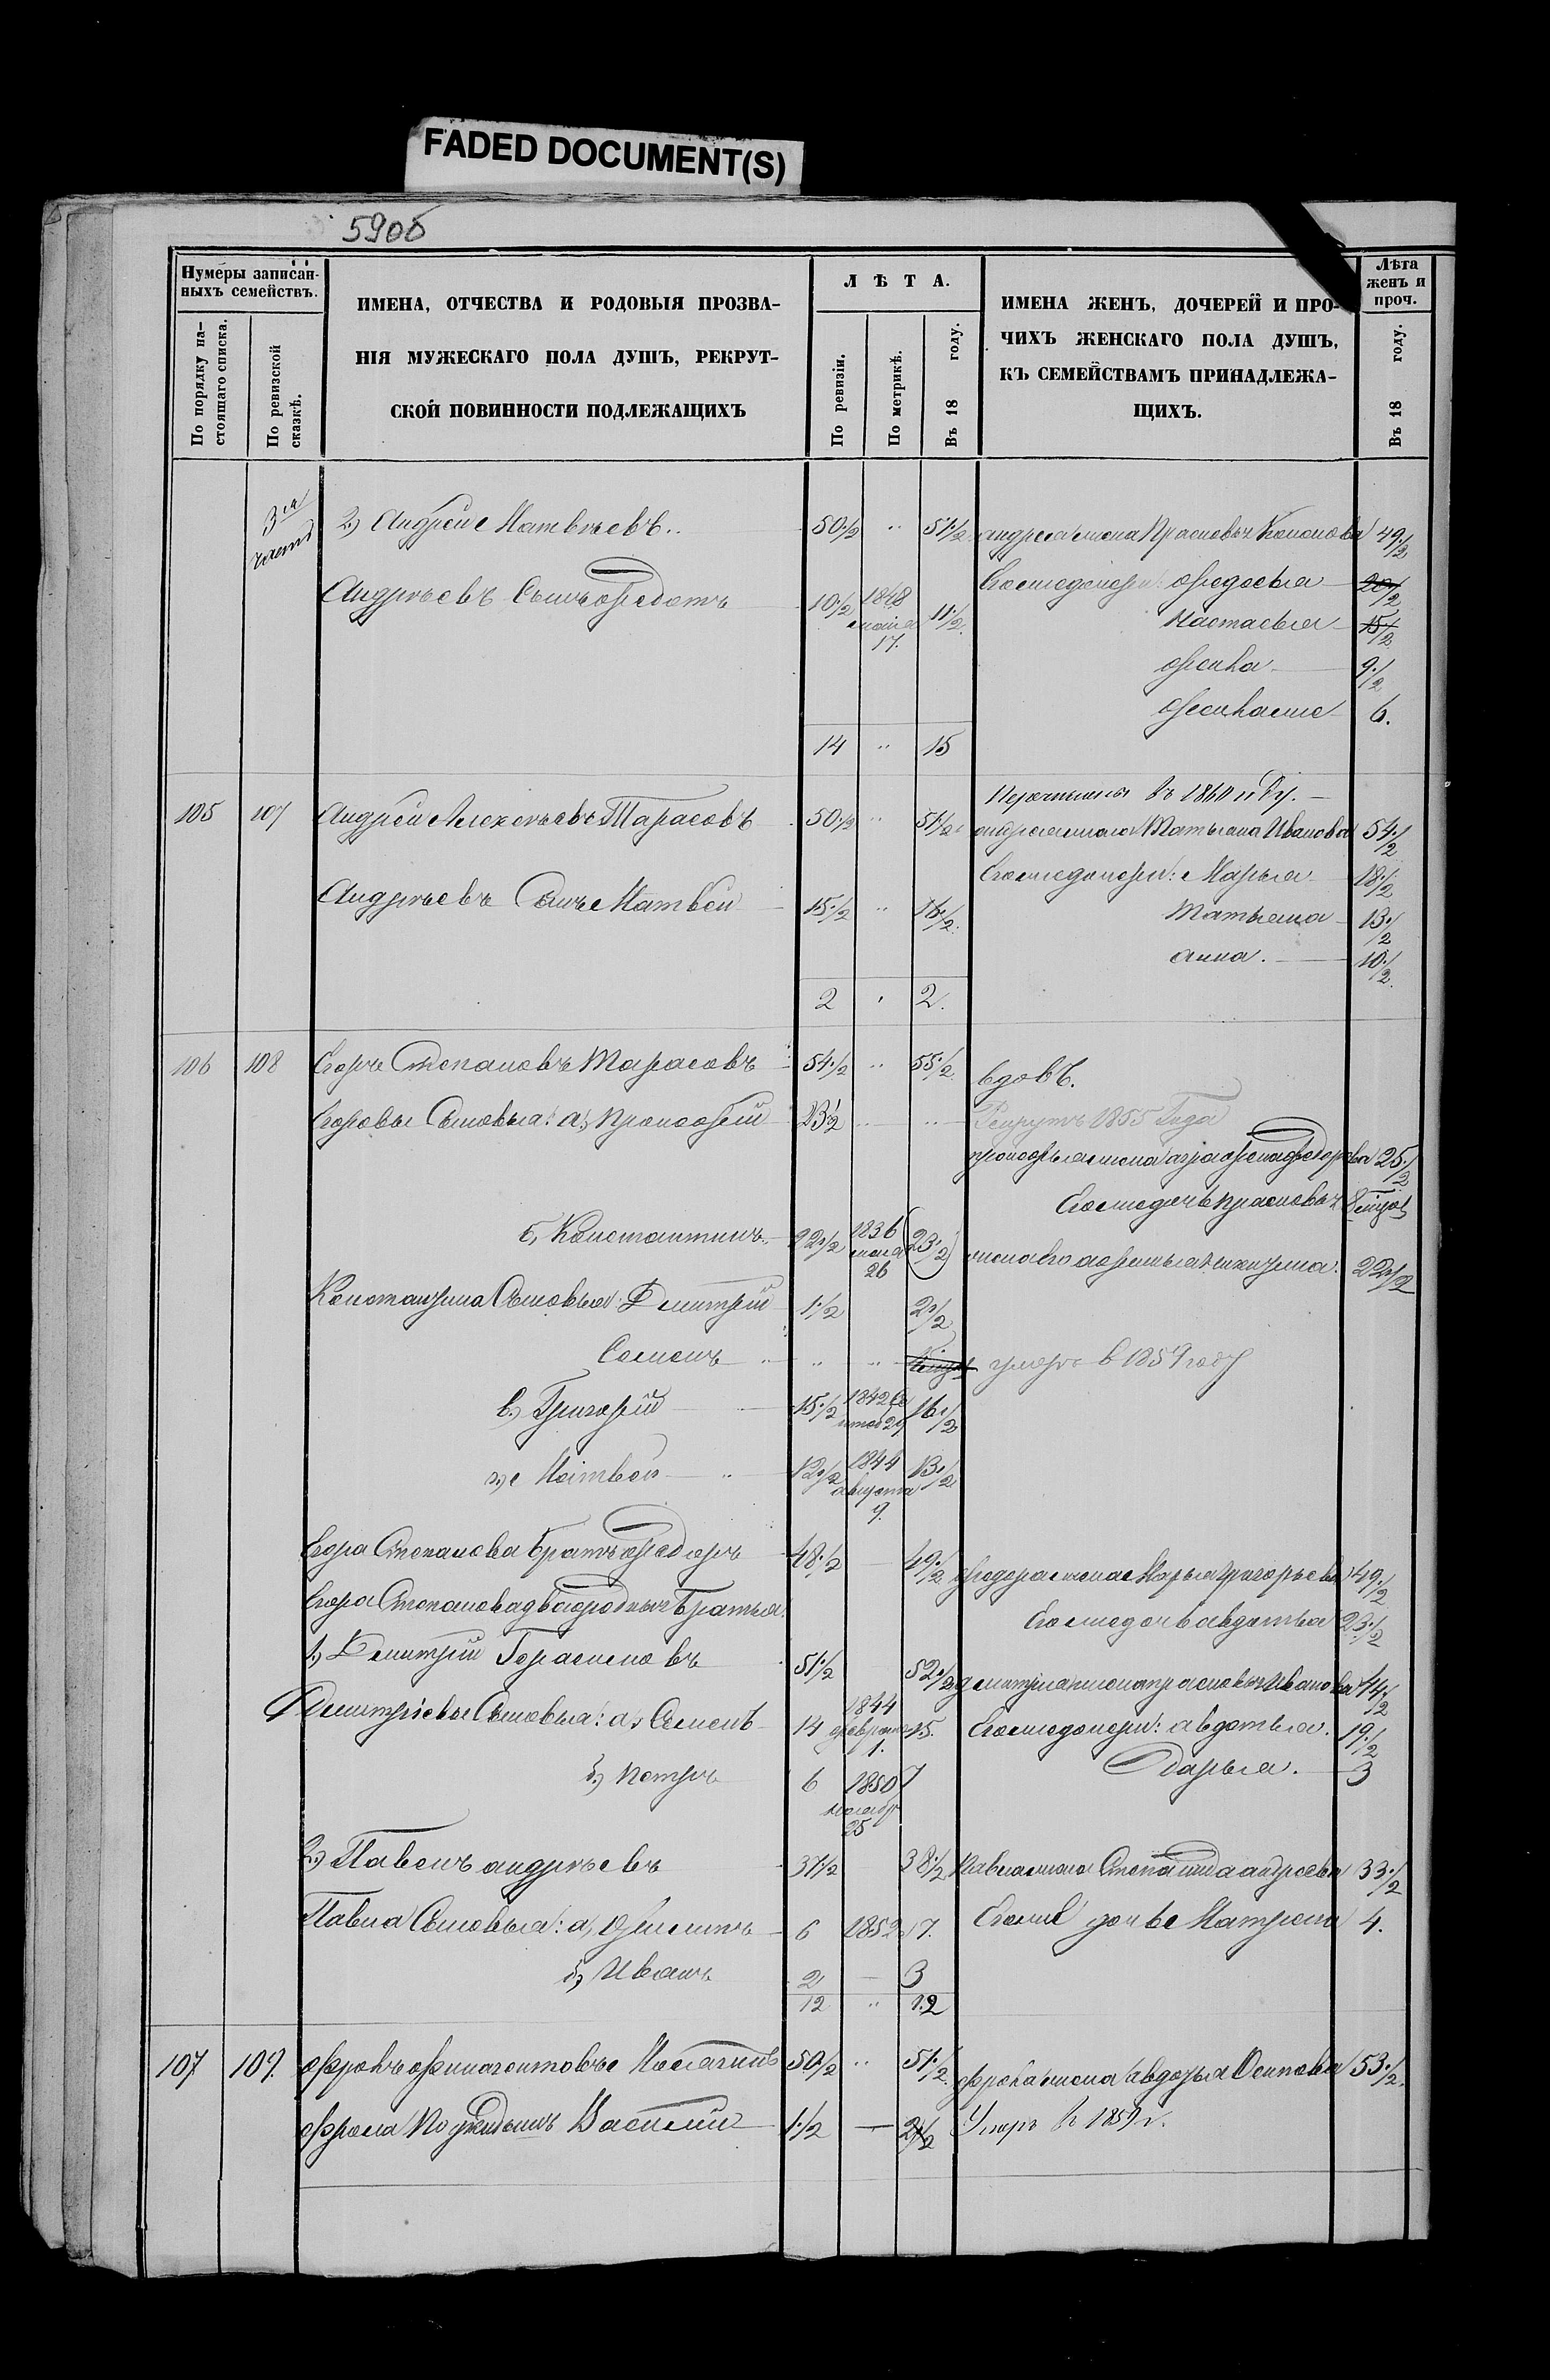 FADED DOCUMENT(S)
590б
Нумеры записан-
ныхъ семействъ.
По порядку на-
стоящаго списка.
По ревизской
сказкѣ.
ИМЕНА, ОТЧЕСТВА И РОДОВЫЯ ПРОЗВА-
НІЯ МУЖЕСКАГО ПОЛА ДУШЪ, РЕКРУТ-
СКОЙ ПОВИННОСТИ ПОДЛЕЖАЩИХЪ
ЛѢТА.
По ревизіи.
По метрикѣ.
Въ 18 году.
ИМЕНА ЖЕНЪ, ДОЧЕРЕЙ И ПРО-
ЧИХЪ ЖЕНСКАГО ПОЛА ДУШЪ,
КЪ СЕМЕЙСТВАМЪ ПРИНАДЛЕЖА-
ЩИХЪ.
Лѣта
женъ и
проч.
Въ 18 году.
3я часть 2) Андрей Матвѣевъ 50 1/2 " 51 1/2 андрея жена Прасковья Кононова 49 1/2
Его же дочери: Федосья 20/2
Андрѣевъ Сынъ Федотъ 10 1/2 1848 мая 17. 11 1/2
Настасья 15/2
Фекла 9 1/2
6.
14 " 15
Перечислены въ 1860 году.
105 107 Андрей Алексѣевъ Тарасовъ 50 1/2 " 51 1/2 андрея жена Татьяна Иванова 54 1/2
Его же дочери: Марья 18 1/2
Андрѣевъ Сынъ Матвей 15 1/2 " 16 1/2 Татьяна 13 1/2
анна. 10 1/2
2 " 2.
106 108 Егоръ Степановъ Тарасовъ 54 1/2 " 55 1/2 вдовъ.
Егоровы Сыновья: а, Прокофей 23 1/2 " " Рекрутъ 1855 Года
прокофья жена аграфена федорова 25 1/2
Его же дочь прасковья
б, Константинъ 22 1/2 1836 мая 26 23 1/2 жена его 22 1/2
Константина Сыновья Дмитрій 1 1/2 2 1/2
Семенъ " " умеръ в 1859 году
в) Григорій 15 1/2 1842 16 1/2
г) Матвей 12 1/2 1844 августа 9. 13 1/2
Егора Степанова братъ федоръ 48 1/2 49 1/2 федора жена Марья григорьева 49 1/2
Егора Степанова двоюродныя Братья:
Его же дочь авдотья 23 1/2
1) Дмитрій Герасимовъ 51 1/2 52 1/2 дмитрия жена прасковья Иванова 44 1/2
Дмитріевы Сыновья: а, Семенъ 14 1844 февраля 1. 15. Его же дочери: авдотья. 19 1/2
б) Петръ 6 1850 25 7 Дарья. 3
2) Павелъ андрѣевъ 37 1/2 38 1/2 Павла жена Степанида андреева 33 1/2
Павла Сыновья: а, Филипъ 6 1852 7. Его же дочь Матрена 4.
б, Иванъ 2 — 3
12 " 12
107 109. Фролъ 50 1/2 " 51 1/2 Фрола жена авдотья Осипова 53 1/2
Фрола Василий 1 1/2 — 2 1/2 Умеръ в 1859 г.